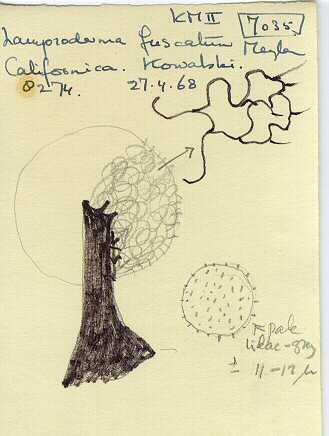 KM II 7035
Lamproderma fuscatum Meylan
California. Kowalski.
8274. 27.4.68
pale
lilac-grey
± 11-12 µ